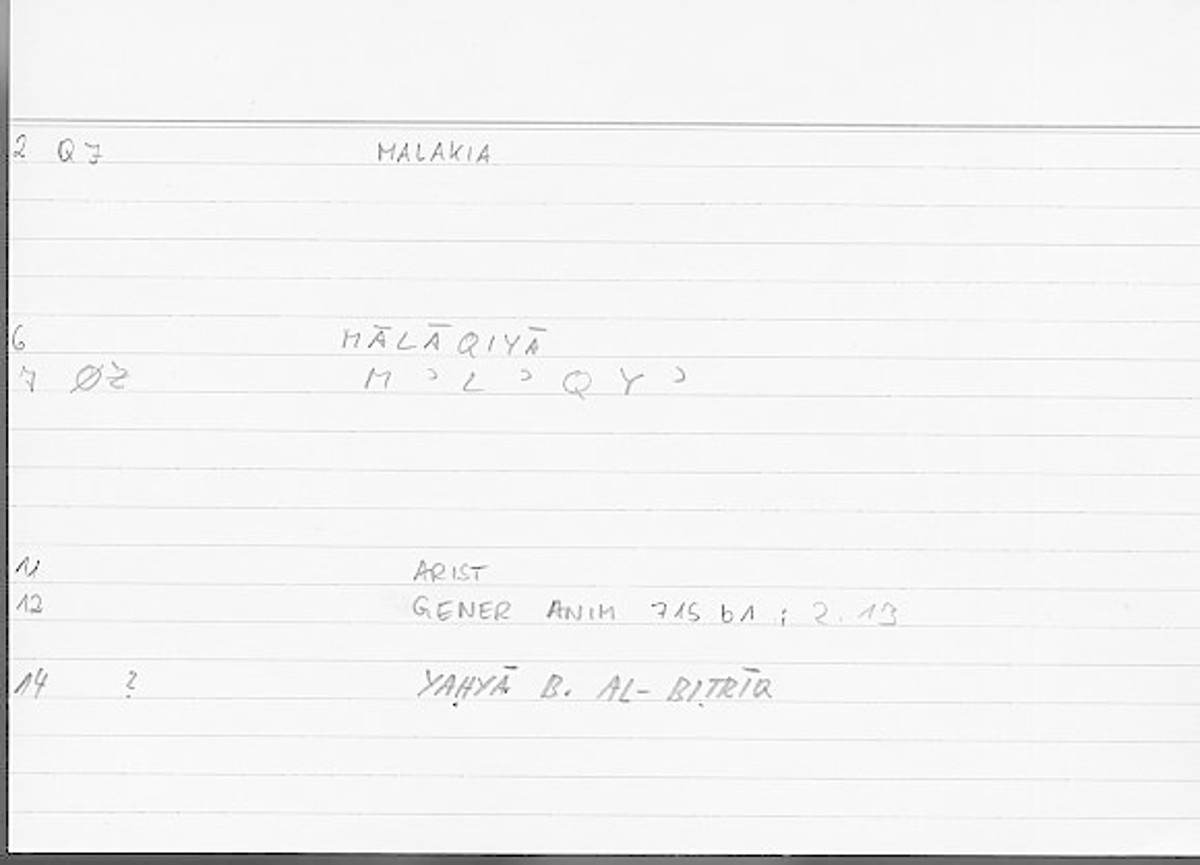 2 Q7 MALAKIA
6 MĀLĀQIYĀ
7 ØZ M ʾ L ʾ Q Y ʾ
11 ARIST
12 GENER ANIM 715 b1 ; 2.13
14 ? YAḤYĀ B. AL-BIṬRĪQ